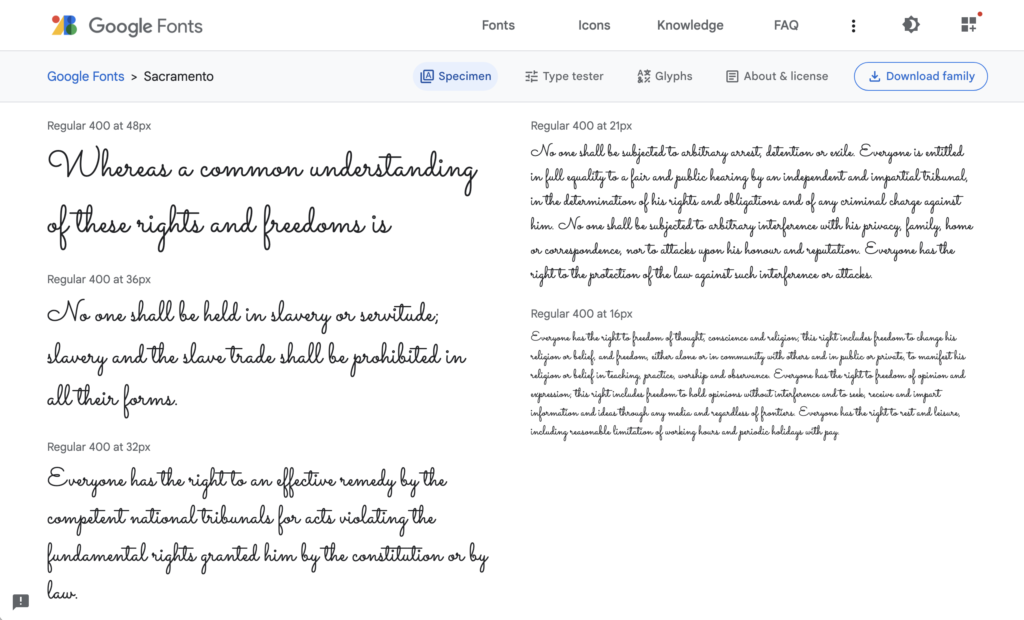 Google Fonts
Fonts
Icons
Knowledge
FAQ
Google Fonts > Sacramento
Specimen
Type tester
Glyphs
About & license
Download family
Regular 400 at 48px
Whereas a common understanding
of these rights and freedoms is
Regular 400 at 36px
No one shall be held in slavery or servitude;
slavery and the slave trade shall be prohibited in
all their forms.
Regular 400 at 32px
Everyone has the right to an effective remedy by the
competent national tribunals for acts violating the
fundamental rights granted him by the constitution or by
law.
Regular 400 at 21px
No one shall be subjected to arbitrary arrest, detention or exile. Everyone is entitled
in full equality to a fair and public hearing by an independent and impartial tribunal,
in the determination of his rights and obligations and of any criminal charge against
him. No one shall be subjected to arbitrary interference with his privacy, family, home
or correspondence, nor to attacks upon his honour and reputation. Everyone has the
right to the protection of the law against such interference or attacks.
Regular 400 at 16px
Everyone has the right to freedom of thought, conscience and religion; this right includes freedom to change his
religion or belief, and freedom, either alone or in community with others and in public or private, to manifest his
religion or belief in teaching, practice, worship and observance. Everyone has the right to freedom of opinion and
expression; this right includes freedom to hold opinions without interference and to seek, receive and impart
information and ideas through any media and regardless of frontiers. Everyone has the right to rest and leisure,
including reasonable limitation of working hours and periodic holidays with pay.